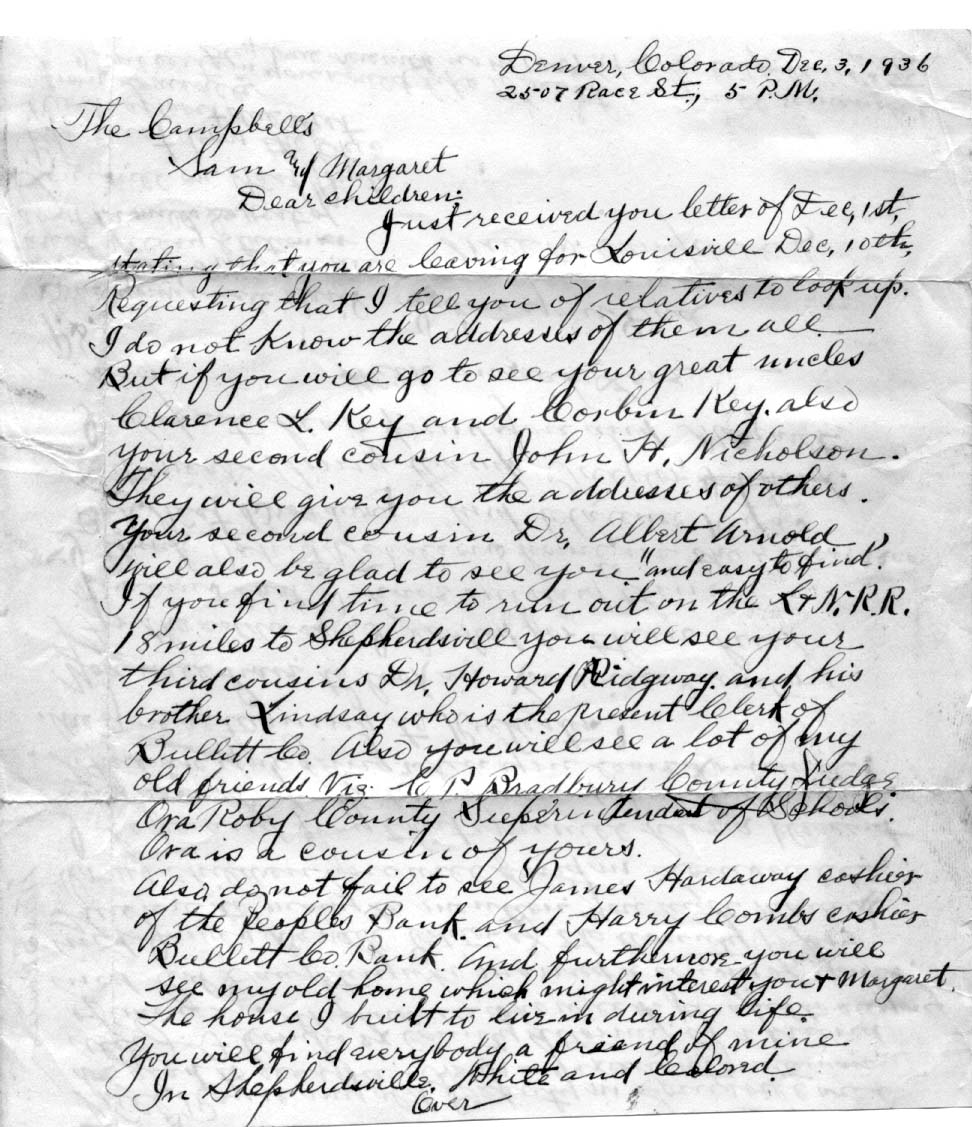 Denver, Colorado, Dec, 3, 1936
2507 Race St., 5 P.M.
The Campbells
Sam and Margaret
Dear children;
Just received you letter of Dec, 1st,
stating that you are leaving for Louisvill Dec, 10th,
Requesting that I tell you of relatives to look up.
I do not know the addresses of them all
But if you will go to see your great uncles
Clarence L. Key and Corbin Key. also
your second cousin John H. Nicholson.
They will give you the addresses of others.
Your second cousin Dr. Albert Arnold,
will also be glad to see you "and easy to find".
If you find time to run out on the L+N.R.R.
18 miles to Shepherdsvill you will see your
third cousins Dr. Howard Ridgway. and his
brother Lindsay who is the present Clerk of
Bullitt Co. Also you will see a lot of my
old friends. Viz. C P. Bradbury County Judge
Ora Roby County Superintendent of Schools.
Ora is a cousin of yours.
Also do not fail to see James Hardaway cashier
of the Peoples Bank. and Harry Combs cashier
Bullitt Co. Bank. And furthermore you will
see my old home which might interest you + Margaret.
The house I built to live in during life.
You will find everybody a friend of mine
In Shepherdsville. White and Colord.
Over